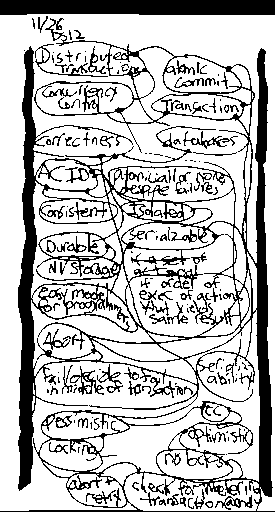 11/26
DS12
Distributed
transactions
atomic
commit
Concurrency
Control
Transaction
Correctness
databases
ACID
Atomic all or none
despite failures
Consistent
Isolated
Durable
Serializable
NV storage
if a set of
if order of
exec of actions
that yields
same result
easy model
for programmers
Abort
fail/decide to fail
in middle of transaction
serializ
ability
pessimistic
CC
optimistic
Locking
no locks
abort +
retry
check for